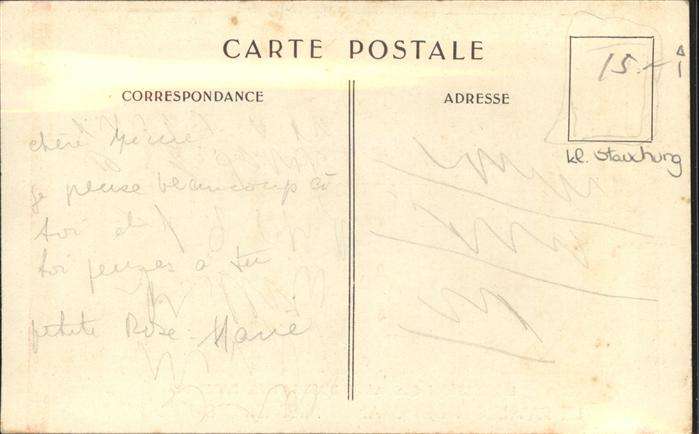 CARTE POSTALE
CORRESPONDANCE
ADRESSE
15.-
kl. Stauchung
chère
je pense beaucoup à
toi et
toi penses à
petite Rose Marie